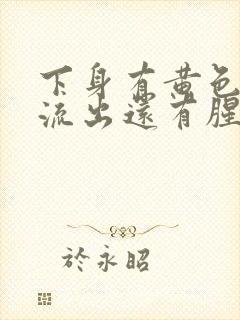 下身有黄色
流出还有腥
於永昭